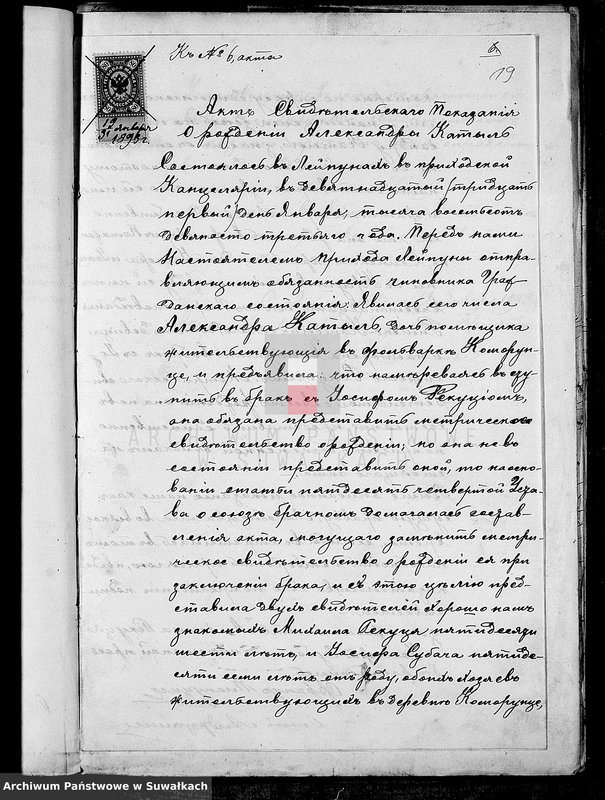 Къ № 6, акта
6.
19
19
31 Января
1893 г.
Актъ Свидѣтельскаго Показанія
О рожденіи Александры Катыль
Состоялось въ Лейпунахъ въ приходской
Канцеляріи, въ девятнадцатый /тридцать
первый/ день Января, тысяча восемьсотъ
девяносто третьяго года. Передъ нами
Настоятелемъ прихода Лейпуны отпра-
вляющимъ обязанность чиновника Граж-
данскаго состоянія: Явилась сего числа
Александра Катыль, дочь помѣщика
жительствующія въ фольваркѣ Коморун-
це, и предъявила: что намѣреваясь всту-
пить въ бракъ съ Іосифомъ Рекуціомъ,
она обязана представить метрическое
свидѣтельство о рожденіи; но она не въ
состояніи представить оной, то на осно-
ваніи статьи пятьдесятъ четвертой Уста-
ва о союзѣ брачномъ домогалась состав-
ленія акта, могущаго замѣнить метри-
ческое свидѣтельство о рожденіи ея при
заключеніи брака, и съ этою цѣлію пред-
ставила двухъ свидѣтелей хорошо намъ
знакомыхъ Михаила Рекуця пятидесяти
шести лѣтъ, и Іосифа Субача пятиде-
сяти семи лѣтъ отъ роду, обоихъ хозяевъ
жительствующихъ въ деревнѣ Коморунце,
Archiwum Państwowe w Suwałkach